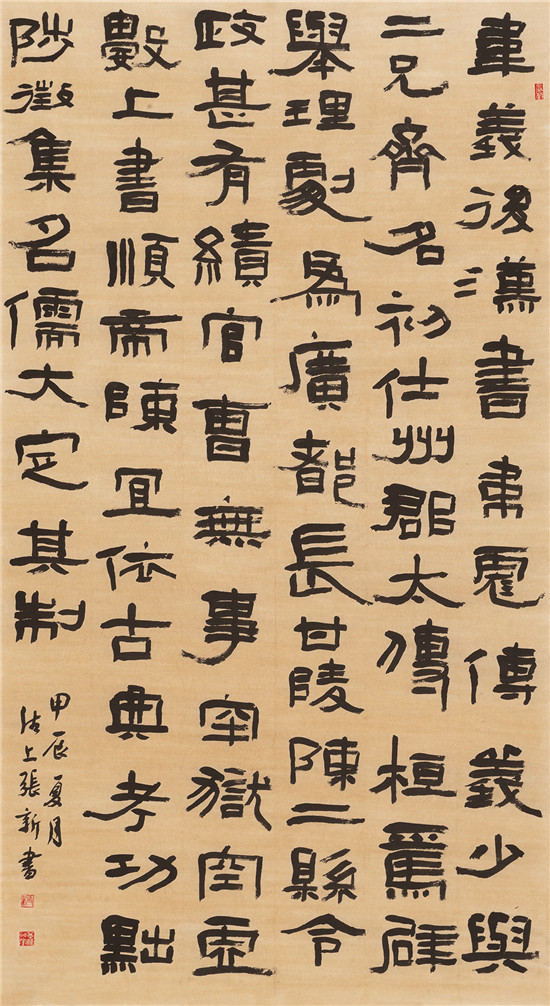 韋義後漢書韋彪傳義少與
二兄齊名初仕州郡太傅桓焉辟
舉理劇為廣都長甘陵陳二縣令
政甚有績官曹無事牢獄空虛
數上書順帝陳宜依古典考功黜
陟徵集名儒大定其制
甲辰夏月
沽上張新書